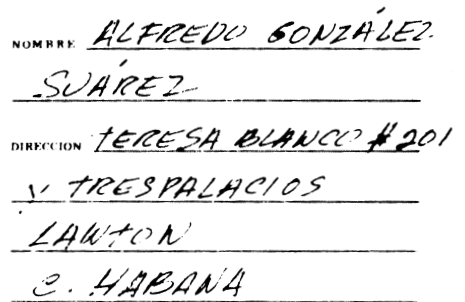 NOMBRE ALFREDO GONZÁLEZ
SUÁREZ
DIRECCION TERESA BLANCO #201
y TRESPALACIOS
LAWTON
C. HABANA